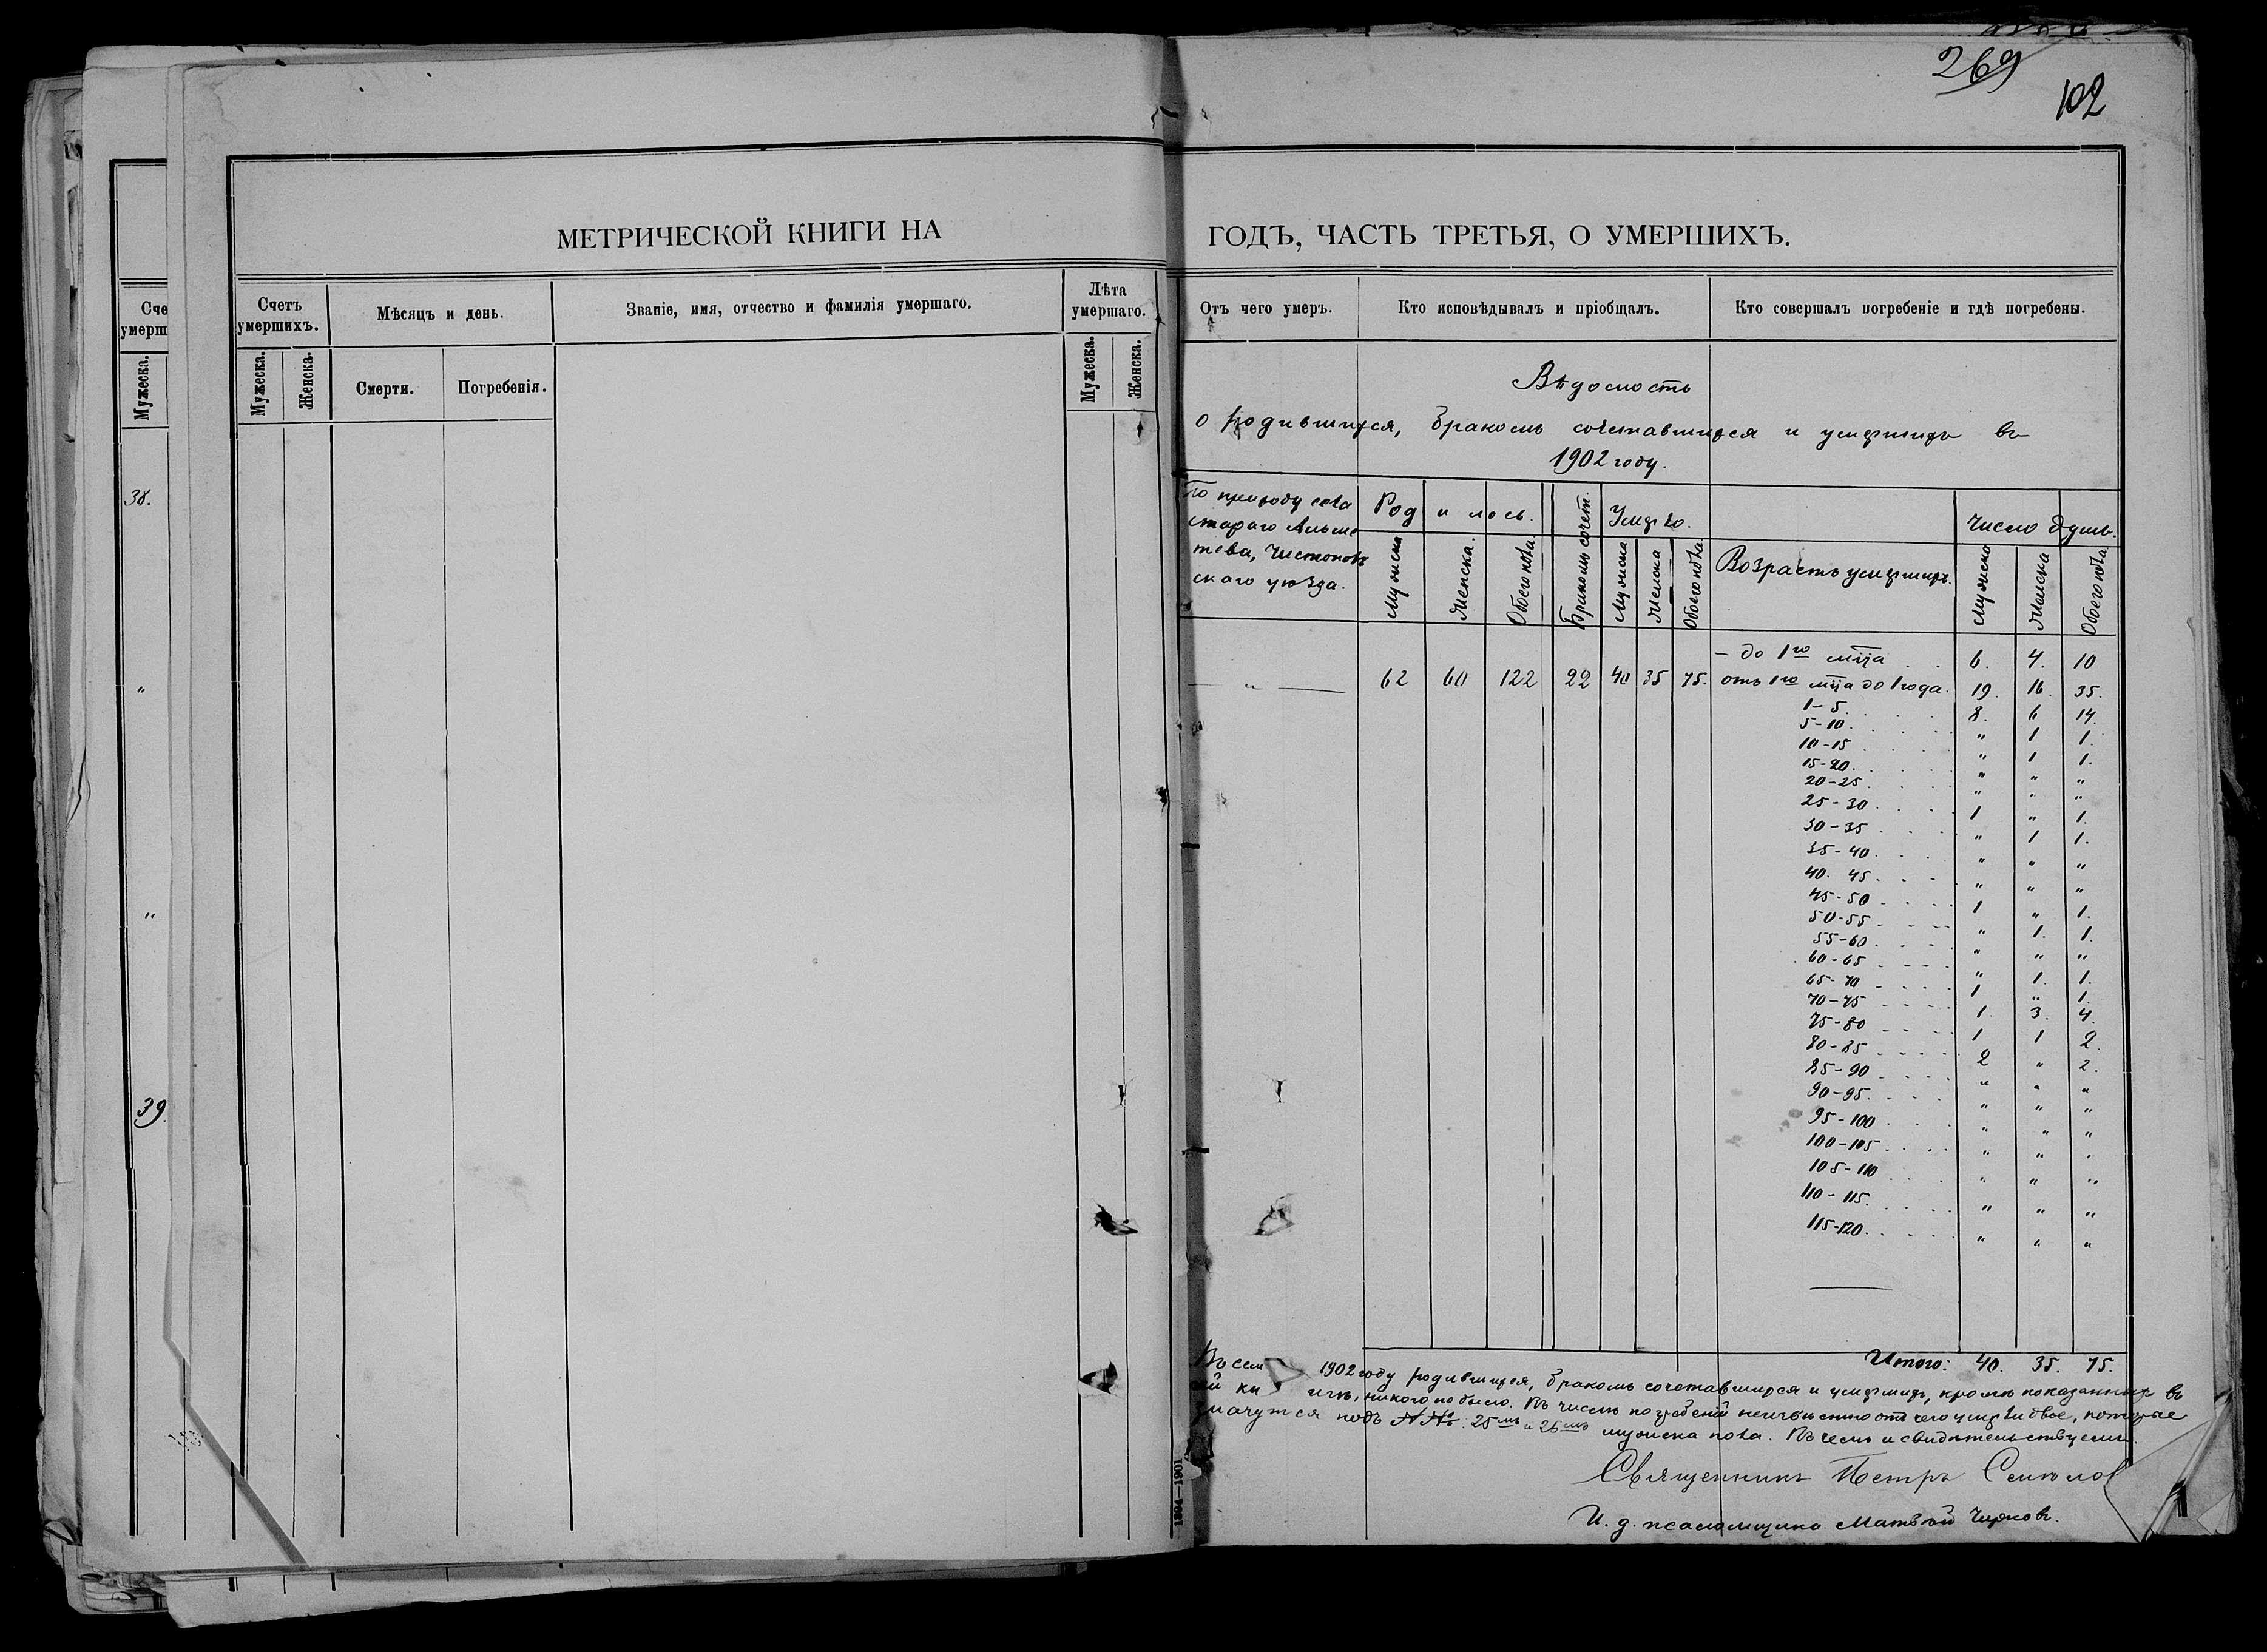 269
102
МЕТРИЧЕСКОЙ КНИГИ НА
ГОДЪ, ЧАСТЬ ТРЕТЬЯ, О УМЕРШИХЪ.
Сче
умерш
Мужеска.
38.
"
"
39.
Счетъ
умершихъ.
Мѣсяцъ и день.
Званіе, имя, отчество и фамилія умершаго.
Лѣта
умершаго.
Мужеска.
Женска.
Смерти.
Погребенія.
Мужеска.
Женска.
Отъ чего умеръ.
Кто исповѣдывалъ и пріобщалъ.
Кто совершалъ погребеніе и гдѣ погребены.
Вѣдомость
о родившихся, бракомъ сочетавшихся и умершихъ въ
1902 году.
По приходу села
стараго Альме
тева, Чистополь
скаго уѣзда.
Род и лось.
Бракомъ сочет.
Умерло.
Возрастъ умершихъ.
Число душъ.
Мужска
Женска.
Обоего пола
Мужска
Женска
Обоего пола
Мужска
Женска
Обоего пола
— " — 62 60 122 22 40 35 75.
— до 1го мца . . 6. 4. 10
отъ 1го мца до 1 года. 19. 16. 35.
1-5. 8. 6 14.
5-10. " 1 1.
10-15 " 1 1.
15-20. " " "
20-25. " " "
25-30. 1 " 1.
30-35 " 1 1.
35-40. " " "
40. 45. " " "
45-50 1 " 1.
50-55 " 1. 1.
55-60. " " "
60-65 " 1. 1.
65-70 1 " 1.
70-75 1. 3. 4.
75-80 1 1 2.
80-85 2 " 2.
85-90 " " "
90-95. " " "
95-100 " " "
100-105 " " "
105-110 " " "
110-115. " " "
115-120. " " "
Итого: 40. 35. 75.
Въ сем 1902 году родившихся, бракомъ сочетавшихся и умершихъ, кромѣ показанныхъ въ
ей кн игѣ, никого не было. Въ числѣ погребеній неизвѣстно отъ чего умерли двое, которые
значутся подъ №№. 25мъ и 26мъ мужска пола. Въ чемъ и свидѣтельствуемъ.
Священникъ Петръ
И. д. псаломщика Матвѣй Чирковъ.
1894—1901